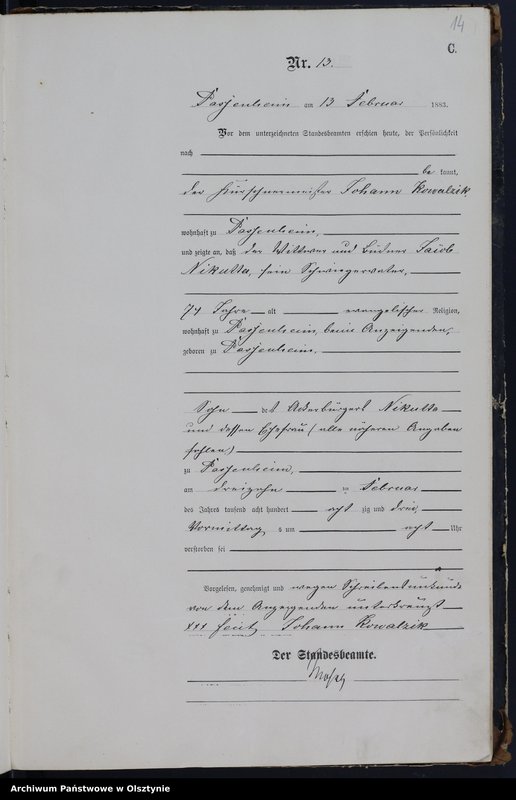 14
C.
Nr. 13.
Passenheim am 13 Februar 1883.
Vor dem unterzeichneten Standesbeamten erschien heute, der Persönlichkeit
nach
be kannt,
der Kürschnermeister Johann Kowalzik,
wohnhaft zu Passenheim,
und zeigte an, daß der Wittwer und Büdner Jacob
Nikutta, sein Schwiegervater,
74 Jahre alt evangelischer Religion,
wohnhaft zu Passenheim, beim Anzeigenden,
geboren zu Passenheim,
Sohn des Ackerbürgers Nikutta
und dessen Ehefrau (alle näheren Angaben
fehlen)
zu Passenheim,
am dreizehn ten Februar
des Jahres tausend acht hundert acht zig und drei,
Vormittags um acht Uhr
verstorben sei
Vorgelesen, genehmigt und wegen Schreibensunkunde
von dem Anzeigenden unterkreuzt
+++ Johann Kowalzik
Der Standesbeamte.
Archiwum Państwowe w Olsztynie